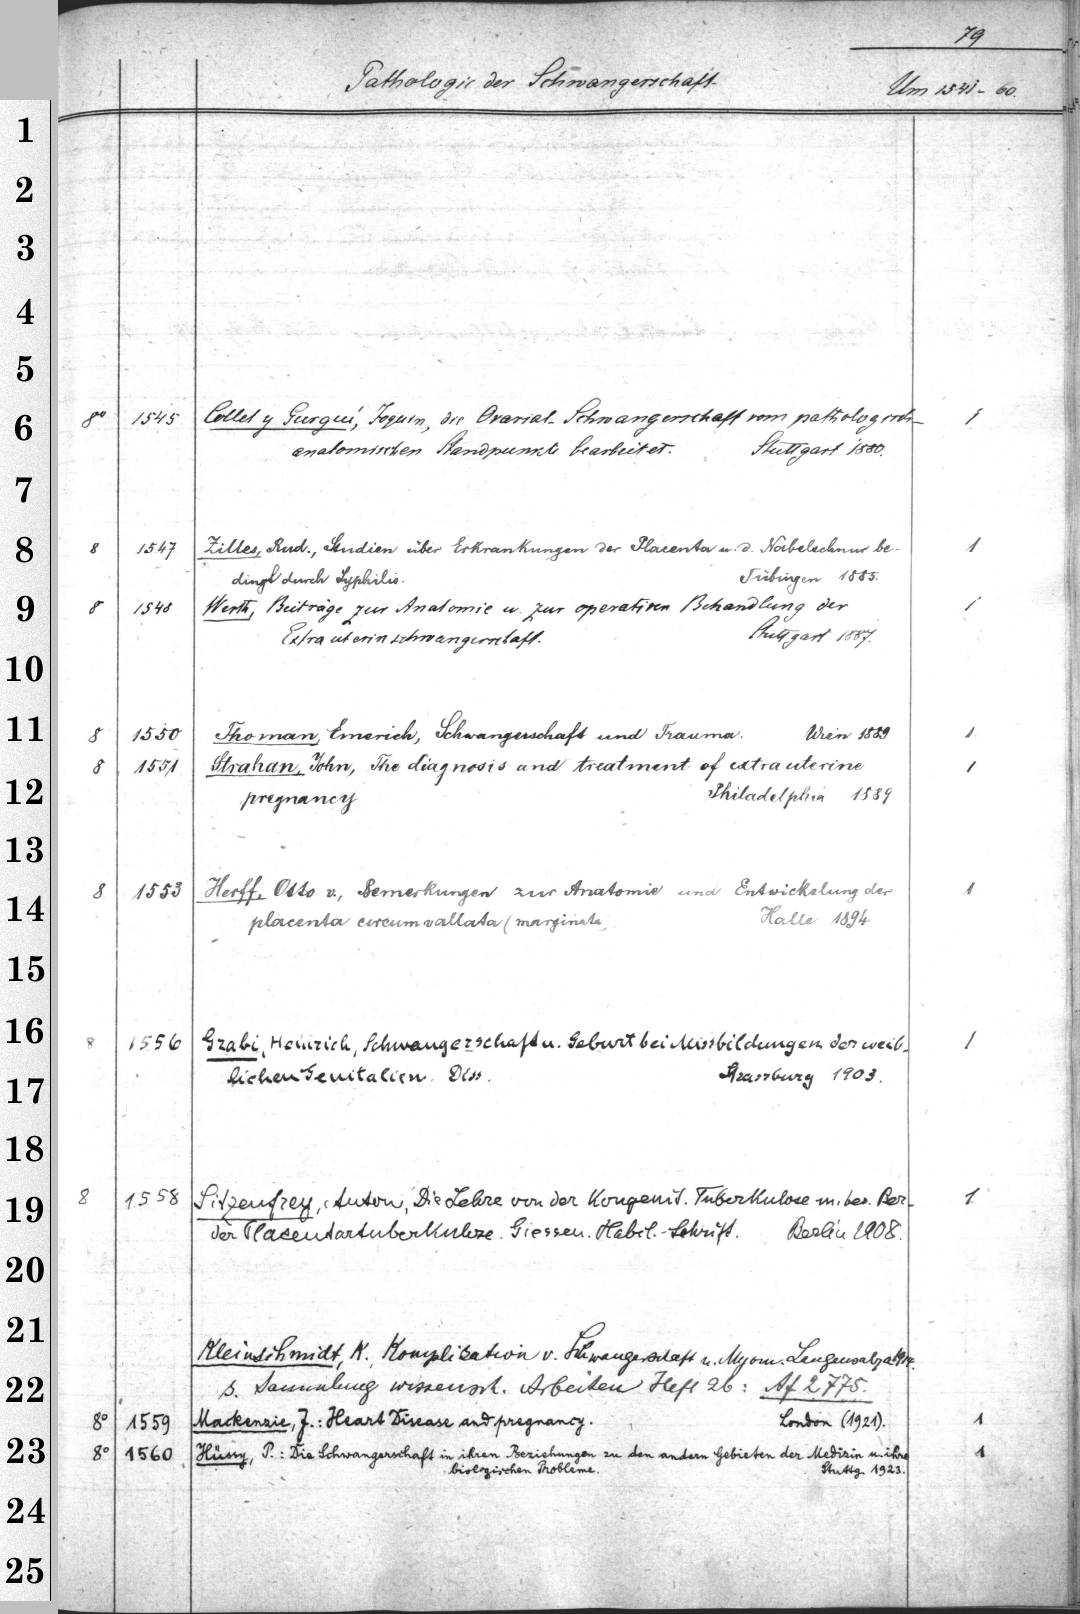 79
Pathologie der Schwangerschaft
Um 1541-60.
1
2
3
4
5
6
8° 1545 Collet y Gurgui, Joquin, die Ovarial-Schwangerschaft vom pathologisch-
anatomischen Standpunkte bearbeitet. Stuttgart 1880. 1
7
8
8 1547 Zilles, Rud., Studien über Erkrankungen der Placenta u. d. Nabelschnur be-
dingt durch Syphilis. Tübingen 1885. 1
9
8 1548 Werth, Beiträge zur Anatomie u. zur operativen Behandlung der
Extrauterinschwangerschaft. Stuttgart 1887. 1
10
11
8 1550 Thoman, Emerich, Schwangerschaft und Trauma. Wien 1889 1
8 1551 Strahan, John, The diagnosis and treatment of extrauterine
12
pregnancy Philadelphia 1889 1
13
14
8 1553 Herff, Otto v., Bemerkungen zur Anatomie und Entwickelung der
placenta circumvallata (marginata, Halle 1894 1
15
16
8 1556 Grabi, Heinrich, Schwangerschaft u. Geburt bei Missbildungen der weib-
17
lichen Genitalien. Diss. Strassburg 1903. 1
18
19
8 1558 Sitzenfrey, Anton, Die Lehre von der Kongenit. Tuberkulose m. bes. Ber-
der Placentartuberkulose. Giessen. Habil.-Schrift. Berlin 1908. 1
20
21
Kleinschmidt, K., Komplikation v. Schwangerschaft u. Myom. Langensalza
22
s. Sammlung wissensch. Arbeiten Heft 26: Af 2775.
8° 1559 Mackenzie, J.: Heart Disease and pregnancy. London (1921). 1
23
8° 1560 Hüssy, P.: Die Schwangerschaft in ihren Beziehungen zu den andern Gebieten der Medizin u. ihre
biologischen Probleme. Stuttg. 1923. 1
24
25